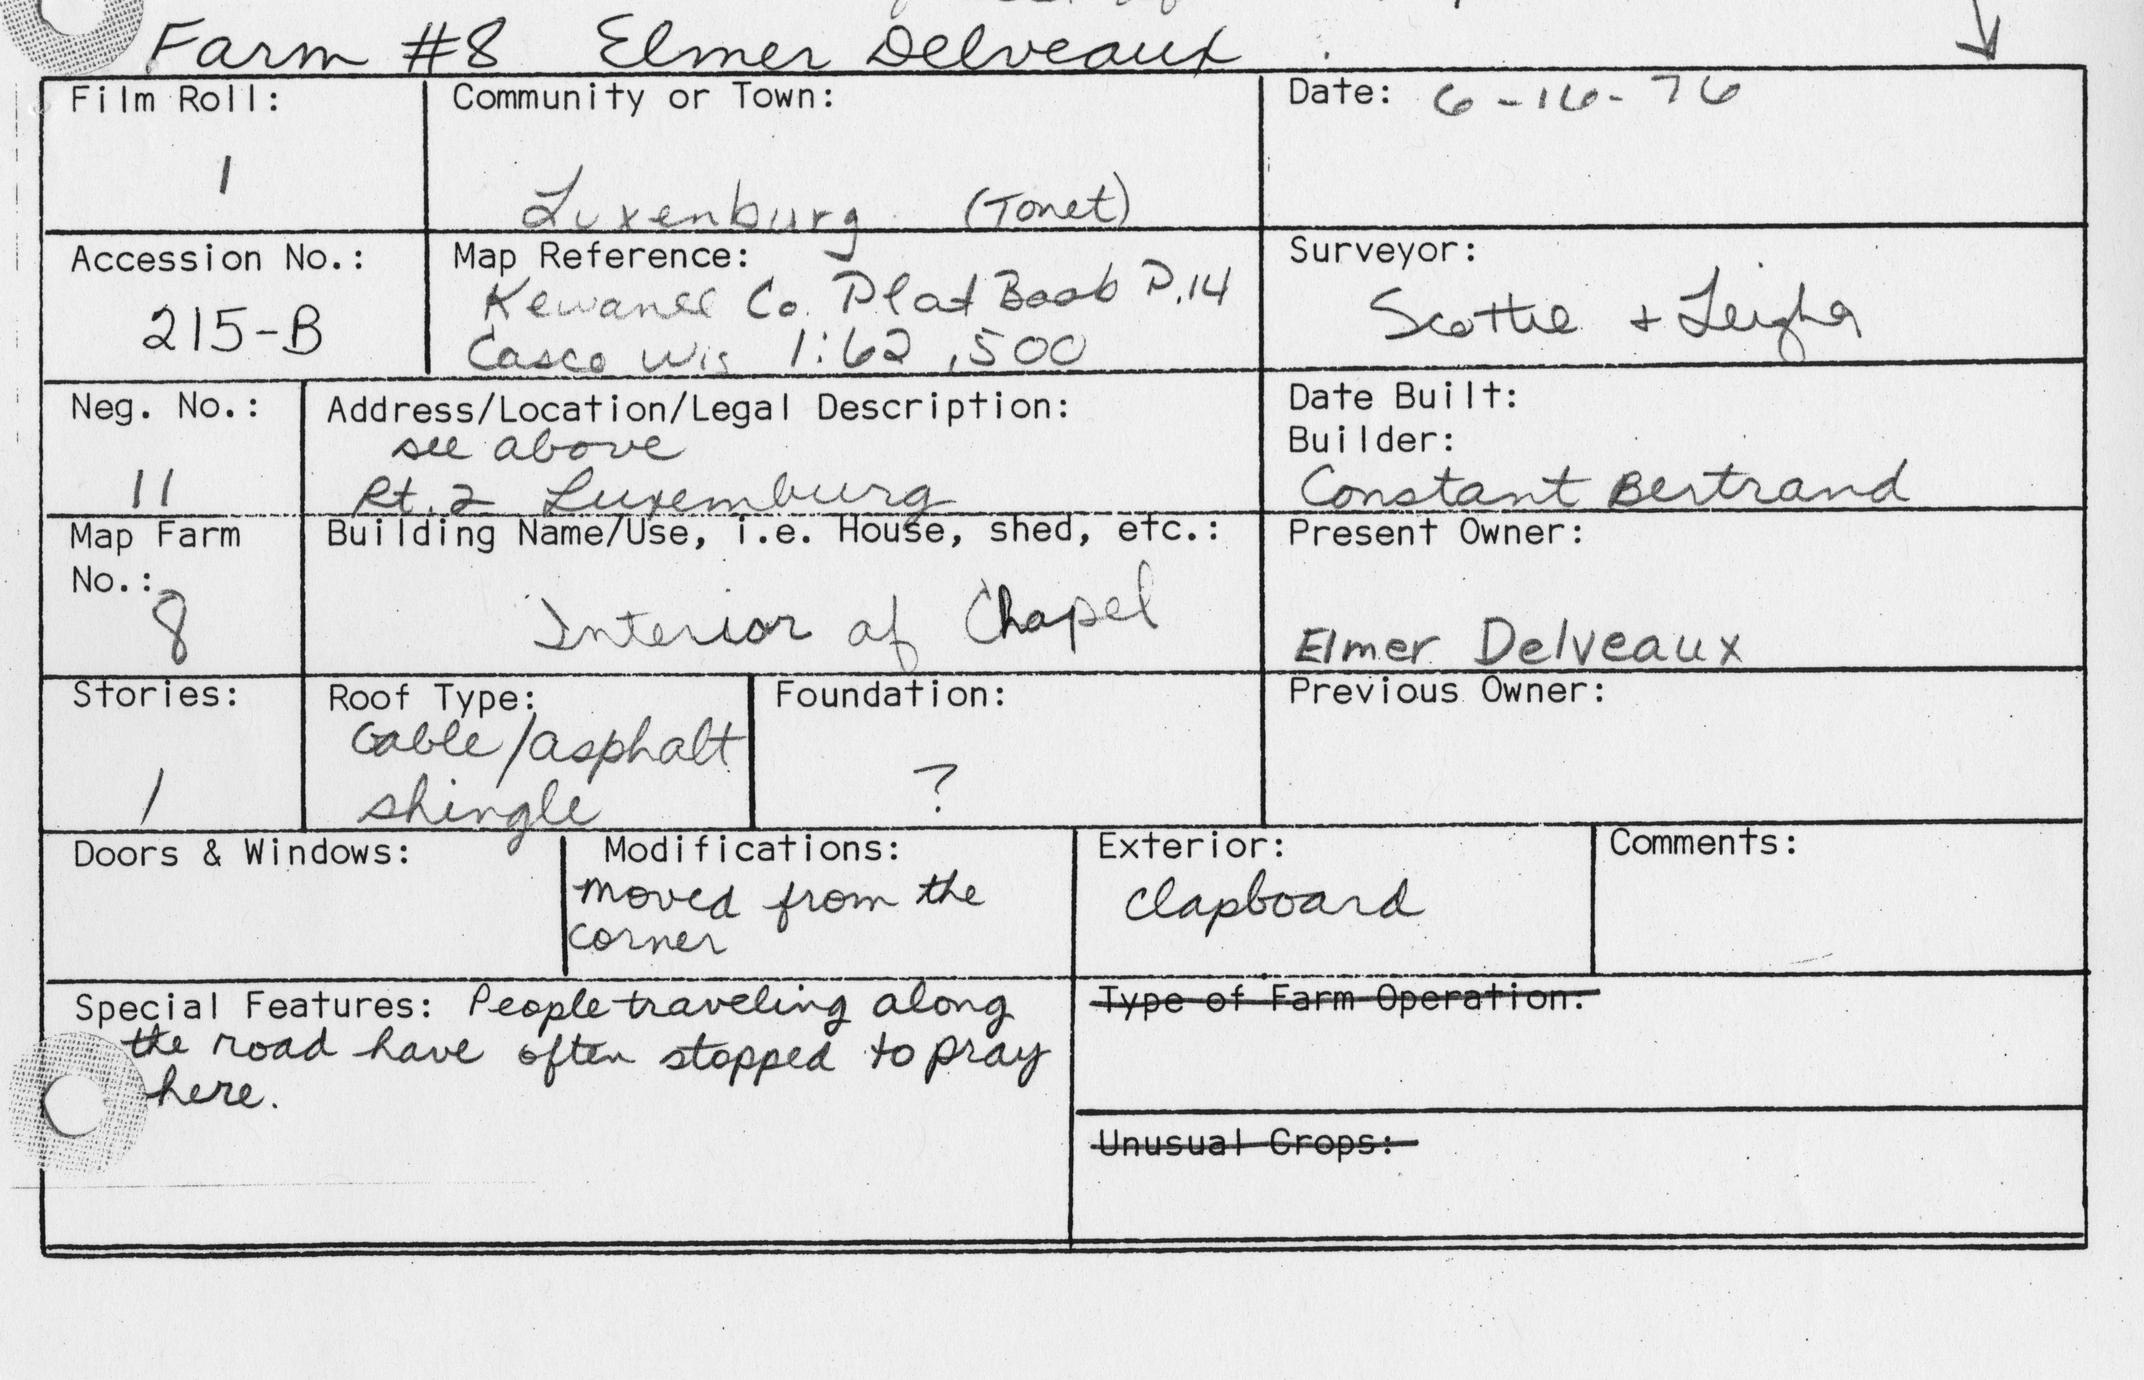 Farm #8 Elmer Delveaux
Film Roll:
1
Community or Town:
Luxenburg (Tonet)
Date: 6-16-76
Accession No.:
215-B
Map Reference:
Kewanee Co. Plat Book P.14
Casco Wis 1:62,500
Surveyor:
Scottie + Leigha
Neg. No.:
11
Address/Location/Legal Description:
see above
Rt. 2 Luxemburg
Date Built:
Builder:
Constant Bertrand
Map Farm
No.:
8
Building Name/Use, i.e. House, shed, etc.:
Interior of Chapel
Present Owner:
Elmer Delveaux
Stories:
1
Roof Type:
Gable/asphalt
shingle
Foundation:
?
Previous Owner:
Doors & Windows:
Modifications:
moved from the
corner
Exterior:
clapboard
Comments:
Special Features: People traveling along
the road have often stopped to pray
here.
Type of Farm Operation:
Unusual Crops: